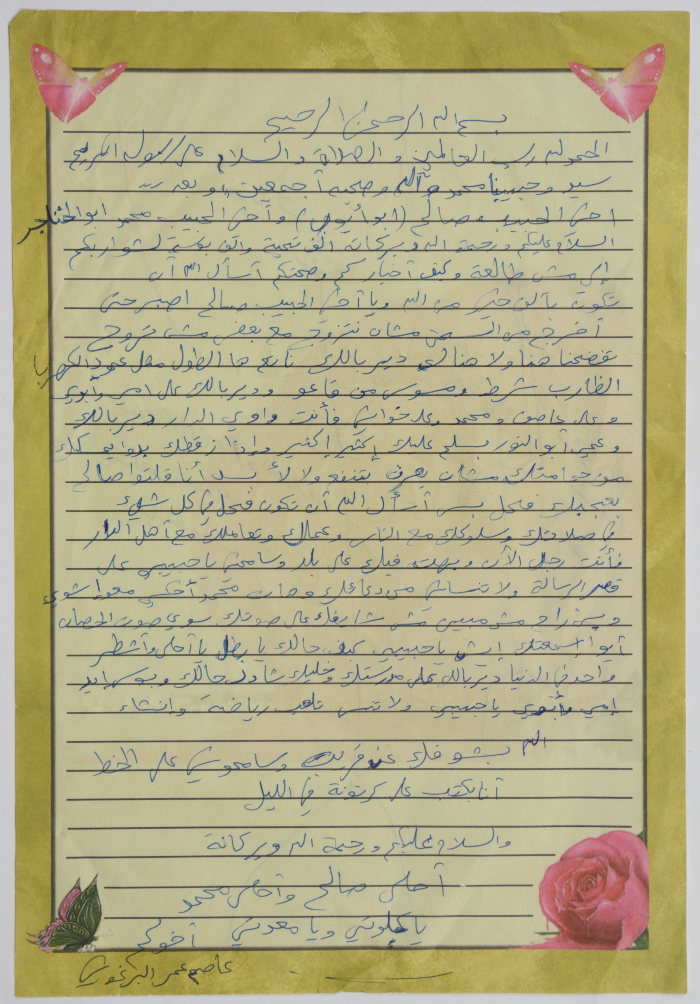 بسم الله الرحمن الرحيم
الحمد لله رب العالمين و الصلاة والسلام على رسول الكريم
سيد وحبيبنا محمد و آله وصحبه أجمعين، وبعد
احلى الحبيب صالح (ابو أيوب) وأحلى الحبيب محمد ابو الخناجر
السلام عليكم ورحمة الله وبركاته ألف تحية وألف بوسة لشواربكم
إلي مش طالعة وكيف أخباركم وصحتكم أسأل الله أن
تكون بألف خير من الله ويا أحلى الحبيب صالح اصبر حتى
أخرج من السجن مشان نتزوج مع بعض مش تتزوج
تفضحنا هنا ولا هناك دير بالك ها الطول مثل عمود الكهربا
الظارب شرط ومسوس من قاعو ودير بالك على امي وأبوي
وعلى عاصف ومحمد وعلى خواتي فأنت واوي الدار دير بالك
وعمي أبو النور بسلم عليك إكثير إكثير وإذا
مشان بتنفع ولا لأ بس أنا قلتوا صالح
بعجبك فحل بس أسأل الله أن تكون فحل في كل شيء
في صلاتك وسلوكك مع الناس وعملك وتعاملك مع أهل الدار
فأنت رجل الآن فيك على بلد وسامحني يا حبيبي على
قصر الرسالة ولا تنساني من دعائك وهات محمد أحكي معوا شوي
وين راح مش مبين مش شايفك على صوتك سوي صوت الحصان
أيوا اسمعتك إيش يا حبيبي كيف حالك يا بطل يا أحلى وأشطر
واحد في الدنيا دير بالك على مدرستك وخليك شادد حالك وبوس إيد
إمي وأبوي يا حبيبي ولا تنس تلعب رياضة وإنشاء
الله بشوفك عن قريب وسامحوني على الخط
أنا بكتب على كرتونة في الليل
والسلام عليكم ورحمة الله وبركاته
أحلى صالح وأحلى محمد
يا ويا أخوكم
عاصم عمر البرغوثي